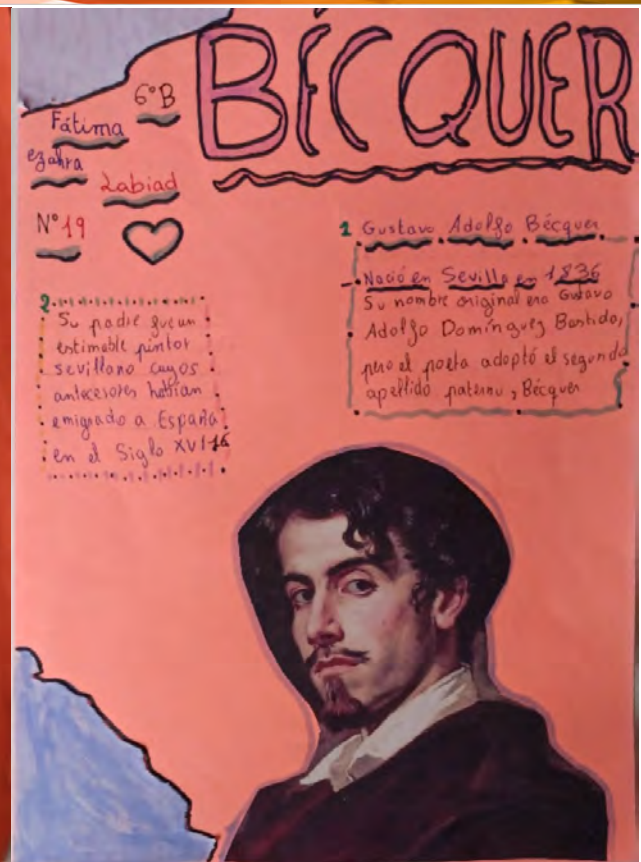 BÉCQUER
6ºB
Fátima
ezahra
Labiad
Nº19
1 Gustavo Adolfo Bécquer
Nació en Sevilla en 1836
Su nombre original era Gustavo
Adolfo Domínguez Bastida,
pero el poeta adoptó el segundo
apellido paterno, Bécquer
2.
Su padre fue un
estimable pintor
sevillano cuyos
antecesores habían
emigrado a España
en el Siglo XVI-16